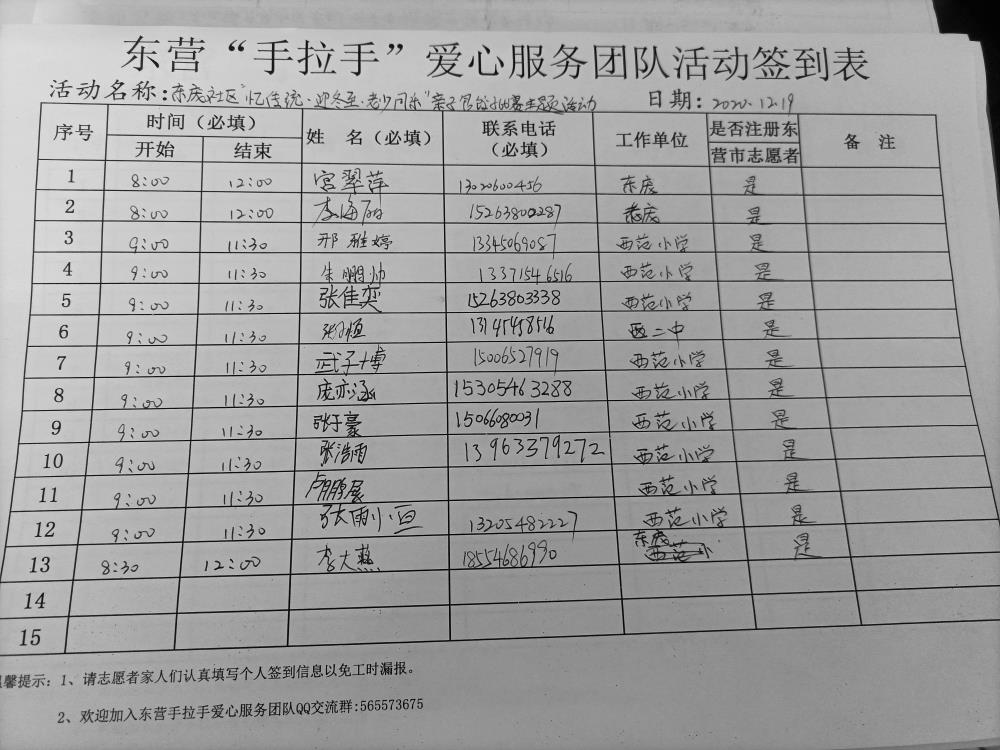 东营“手拉手”爱心服务团队活动签到表
活动名称：东庞社区"忆传统·迎冬至·老少同乐"亲子包饺子比赛主题活动 日期：2020.12.19
序号 时间（必填） 姓 名（必填） 联系电话（必填） 工作单位 是否注册东营市志愿者 备 注
开始 结束
1 8:00 12:00 宫翠萍 13020600456 东庞 是
2 8:00 12:00 李海丽 15263800287 东庞 是
3 9:00 11:30 邢雅婷 13345069087 西范小学 是
4 9:00 11:30 朱鹏帅 13371546516 西范小学 是
5 9:00 11:30 张佳奕 15263803338 西范小学 是
6 9:00 11:30 张恒 13145458516 西二中 是
7 9:00 11:30 武子博 15006527919 西范小学 是
8 9:00 11:30 庞亦涵 15305463288 西范小学 是
9 9:00 11:30 张于豪 1506680031 西范小学 是
10 9:00 11:30 张浩雨 13963379272 西范小学 是
11 9:00 11:30 卢鹏展 西范小学 是
12 9:00 11:30 张雨小 13205482227 西范小学 是
13 8:30 12:00 李大燕 18554686990 东庞 西范小 是
14
15
温馨提示：1、请志愿者家人们认真填写个人签到信息以免工时漏报。
2、欢迎加入东营手拉手爱心服务团队QQ交流群:565573675